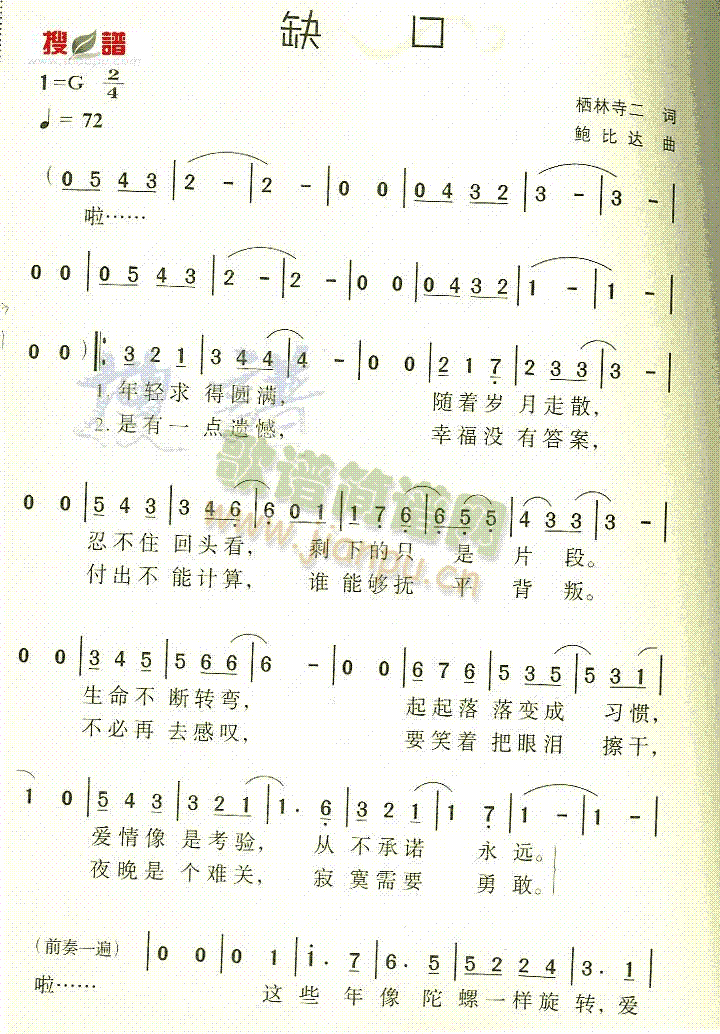 搜谱
缺 口
1=G 2/4
♩= 72
栖林寺二 词
鲍比达 曲
(0 5 4 3 | 2 - | 2 - | 0 0 | 0 4 3 2 | 3 - | 3 - |
啦……
0 0 | 0 5 4 3 | 2 - | 2 - | 0 0 | 0 4 3 2 | 1 - | 1 - |
0 0 ) ‖: 3 2 1 | 3 4 4 | 4 - | 0 0 | 2 1 7 | 2 3 3 | 3 - |
1. 年轻求 得圆满, 随着岁 月走散,
2. 是有一 点遗憾, 幸福没 有答案,
歌谱简谱网
www.jianpu.cn
0 0 | 5 4 3 | 3 4 6 | 6 0 1 | 1 7 6 | 6 5 5 | 4 3 3 | 3 - |
忍不住 回头看, 剩 下的只 是 片 段。
付出不 能计算, 谁 能够抚 平 背 叛。
0 0 | 3 4 5 | 5 6 6 | 6 - | 0 0 | 6 7 6 | 5 3 5 | 5 3 1 |
生命不 断转弯, 起起落 落变成 习惯,
不必再 去感叹, 要笑着 把眼泪 擦干,
1 0 | 5 4 3 | 3 2 1 | 1. 6 | 3 2 1 | 1 7 | 1 - | 1 - |
爱情像 是考验, 从 不承诺 永 远。
夜晚是 个难关, 寂 寞需要 勇 敢。
(前奏一遍) | 0 0 | 0 1 | 1. 7 | 6. 5 | 5 2 2 4 | 3. 1 |
啦…… 这 些 年 像 陀 螺 一 样 旋 转, 爱